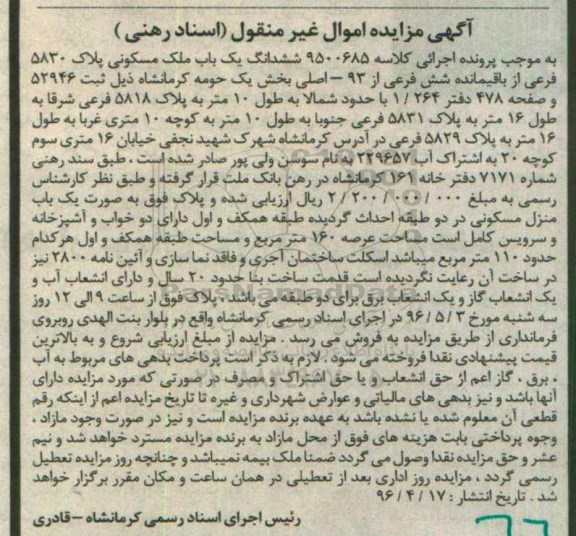 آگهی مزایده اموال غیر منقول (اسناد رهنی)
به موجب پرونده اجرائی کلاسه ۹۵۰۰۶۸۵ ششدانگ یک باب ملک مسکونی پلاک ۵۸۳۰
فرعی از باقیمانده شش فرعی از ۹۳ – اصلی بخش یک حومه کرمانشاه ذیل ثبت ۵۲۹۴۶
و صفحه ۴۷۸ دفتر ۲۶۴ / ۱ با حدود شمالا به طول ۱۰ متر به پلاک ۵۸۱۸ فرعی شرقا به
طول ۱۶ متر به پلاک ۵۸۳۱ فرعی جنوبا به طول ۱۰ متر به کوچه ۱۰ متری غربا به طول
۱۶ متر به پلاک ۵۸۲۹ فرعی در آدرس کرمانشاه شهرک شهید نجفی خیابان ۱۶ متری سوم
کوچه ۲۰ به اشتراک آب ۲۲۹۶۵۷ به نام سوسن ولی پور صادر شده است ، طبق سند رهنی
شماره ۷۱۷۱ دفتر خانه ۱۶۱ کرمانشاه در رهن بانک ملت قرار گرفته و طبق نظر کارشناس
رسمی به مبلغ ۰۰۰ / ۰۰۰ / ۲۰۰ / ۲ ریال ارزیابی شده و پلاک فوق به صورت یک باب
منزل مسکونی در دو طبقه احداث گردیده طبقه همکف و اول دارای دو خواب و آشپزخانه
و سرویس کامل است مساحت عرصه ۱۶۰ متر مربع و مساحت طبقه همکف و اول هرکدام
حدود ۱۱۰ متر مربع میباشد اسکلت ساختمان آجری و فاقد نما سازی و آئین نامه ۲۸۰۰ نیز
در ساخت آن رعایت نگردیده است قدمت ساخت بنا حدود ۲۰ سال و دارای انشعاب آب و
یک انشعاب گاز و یک انشعاب برق برای دو طبقه می باشد . پلاک فوق از ساعت ۹ الی ۱۲ روز
سه شنبه مورخ ۳ / ۵ / ۹۶ در اجرای اسناد رسمی کرمانشاه واقع در بلوار بنت الهدی روبروی
فرمانداری از طریق مزایده به فروش می رسد . مزایده از مبلغ ارزیابی شروع و به بالاترین
قیمت پیشنهادی نقدا فروخته می شود . لازم به ذکر است پرداخت بدهی های مربوط به آب
، برق ، گاز اعم از حق انشعاب و یا حق اشتراک و مصرف در صورتی که مورد مزایده دارای
آنها باشد و نیز بدهی های مالیاتی و عوارض شهرداری و غیره تا تاریخ مزایده اعم از اینکه رقم
قطعی آن معلوم شده یا نشده باشد به عهده برنده مزایده است و نیز در صورت وجود مازاد ،
وجوه پرداختی بابت هزینه های فوق از محل مازاد به برنده مزایده مسترد خواهد شد و نیم
عشر و حق مزایده نقدا وصول می گردد ضمنا ملک بیمه نمیباشد و چنانچه روز مزایده تعطیل
رسمی گردد ، مزایده روز اداری بعد از تعطیلی در همان ساعت و مکان مقرر برگزار خواهد
شد . تاریخ انتشار : ۱۷ / ۴ / ۹۶
رئیس اجرای اسناد رسمی کرمانشاه – قادری